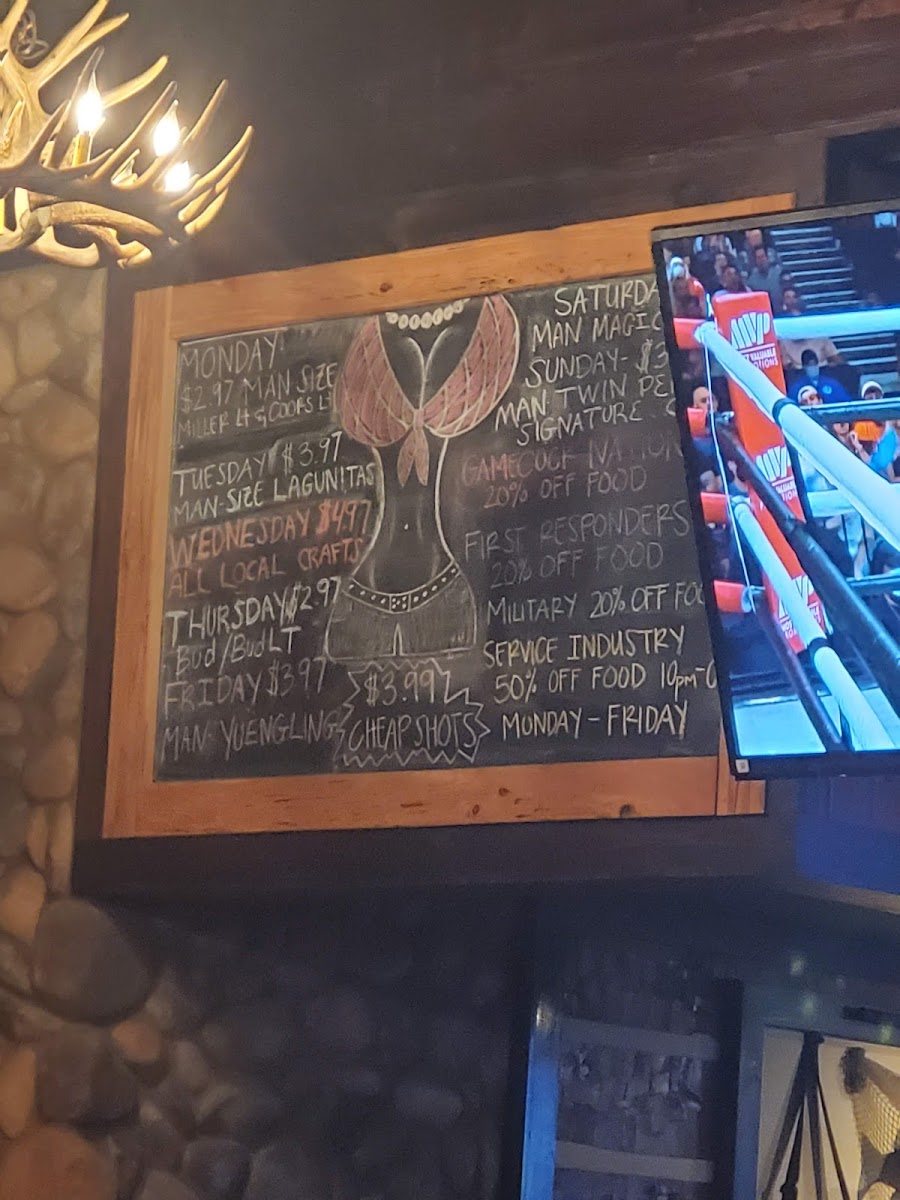 MONDAY
$2.97 MAN SIZE
MILLER LT & COORS LT
TUESDAY $3.97
MAN-SIZE LAGUNITAS
WEDNESDAY $4.97
ALL LOCAL CRAFTS
THURSDAY $2.97
BUD/BUD LT
FRIDAY $3.97
MAN-YUENGLING
$3.99
CHEAP SHOTS
SATURDA
MAN MAGIC
SUNDAY- $3
MAN TWIN PE
SIGNATURE
GAMECOCK NATION
20% OFF FOOD
FIRST RESPONDERS
20% OFF FOOD
MILITARY 20% OFF FOO
SERVICE INDUSTRY
50% OFF FOOD 10PM-C
MONDAY-FRIDAY
MVP